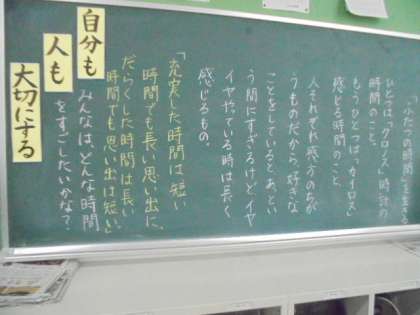 「ふたつの時間」を生きる
ひとつは、「クロノス」時計の
時間のこと。
もうひとつは「カイロス」
感じる時間のこと。
人それぞれ感じ方のちが
うものだから、好きな
ことをしているとあっとい
う間にすぎるけどイヤ
イヤやている時は長く
感じるもの。
「充実した時間は短い
時間でも長い思い出に、
だらくした時間は長い
時間でも思い出は短い。」
みんなは、どんな時間
をすごしたいかな?
自分も
人も
大切にする